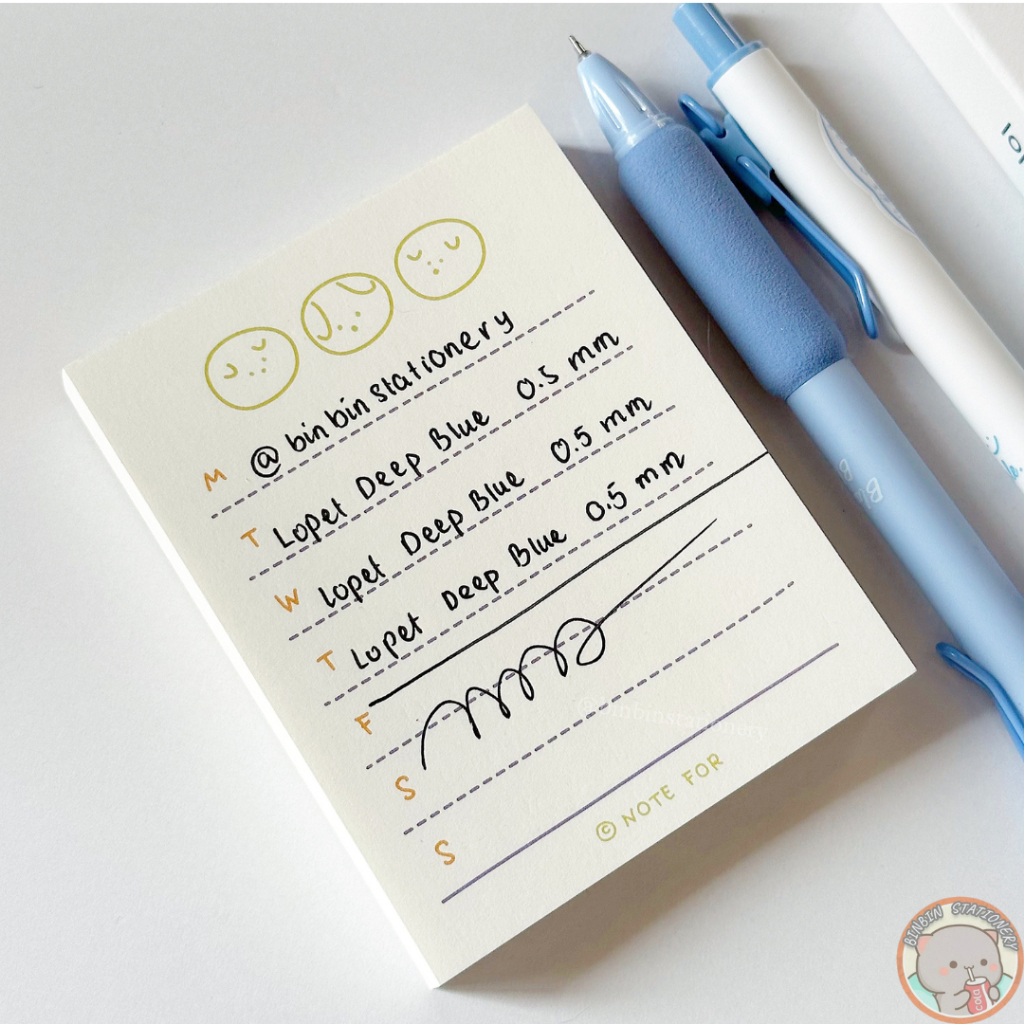 M @ bin bin stationery
T Lopet Deep Blue 0.5 mm
W Lopet Deep Blue 0.5 mm
T Lopet Deep Blue 0.5 mm
F
S
S
© NOTE FOR
@binbinstationery
BINBIN STATIONERY
cola